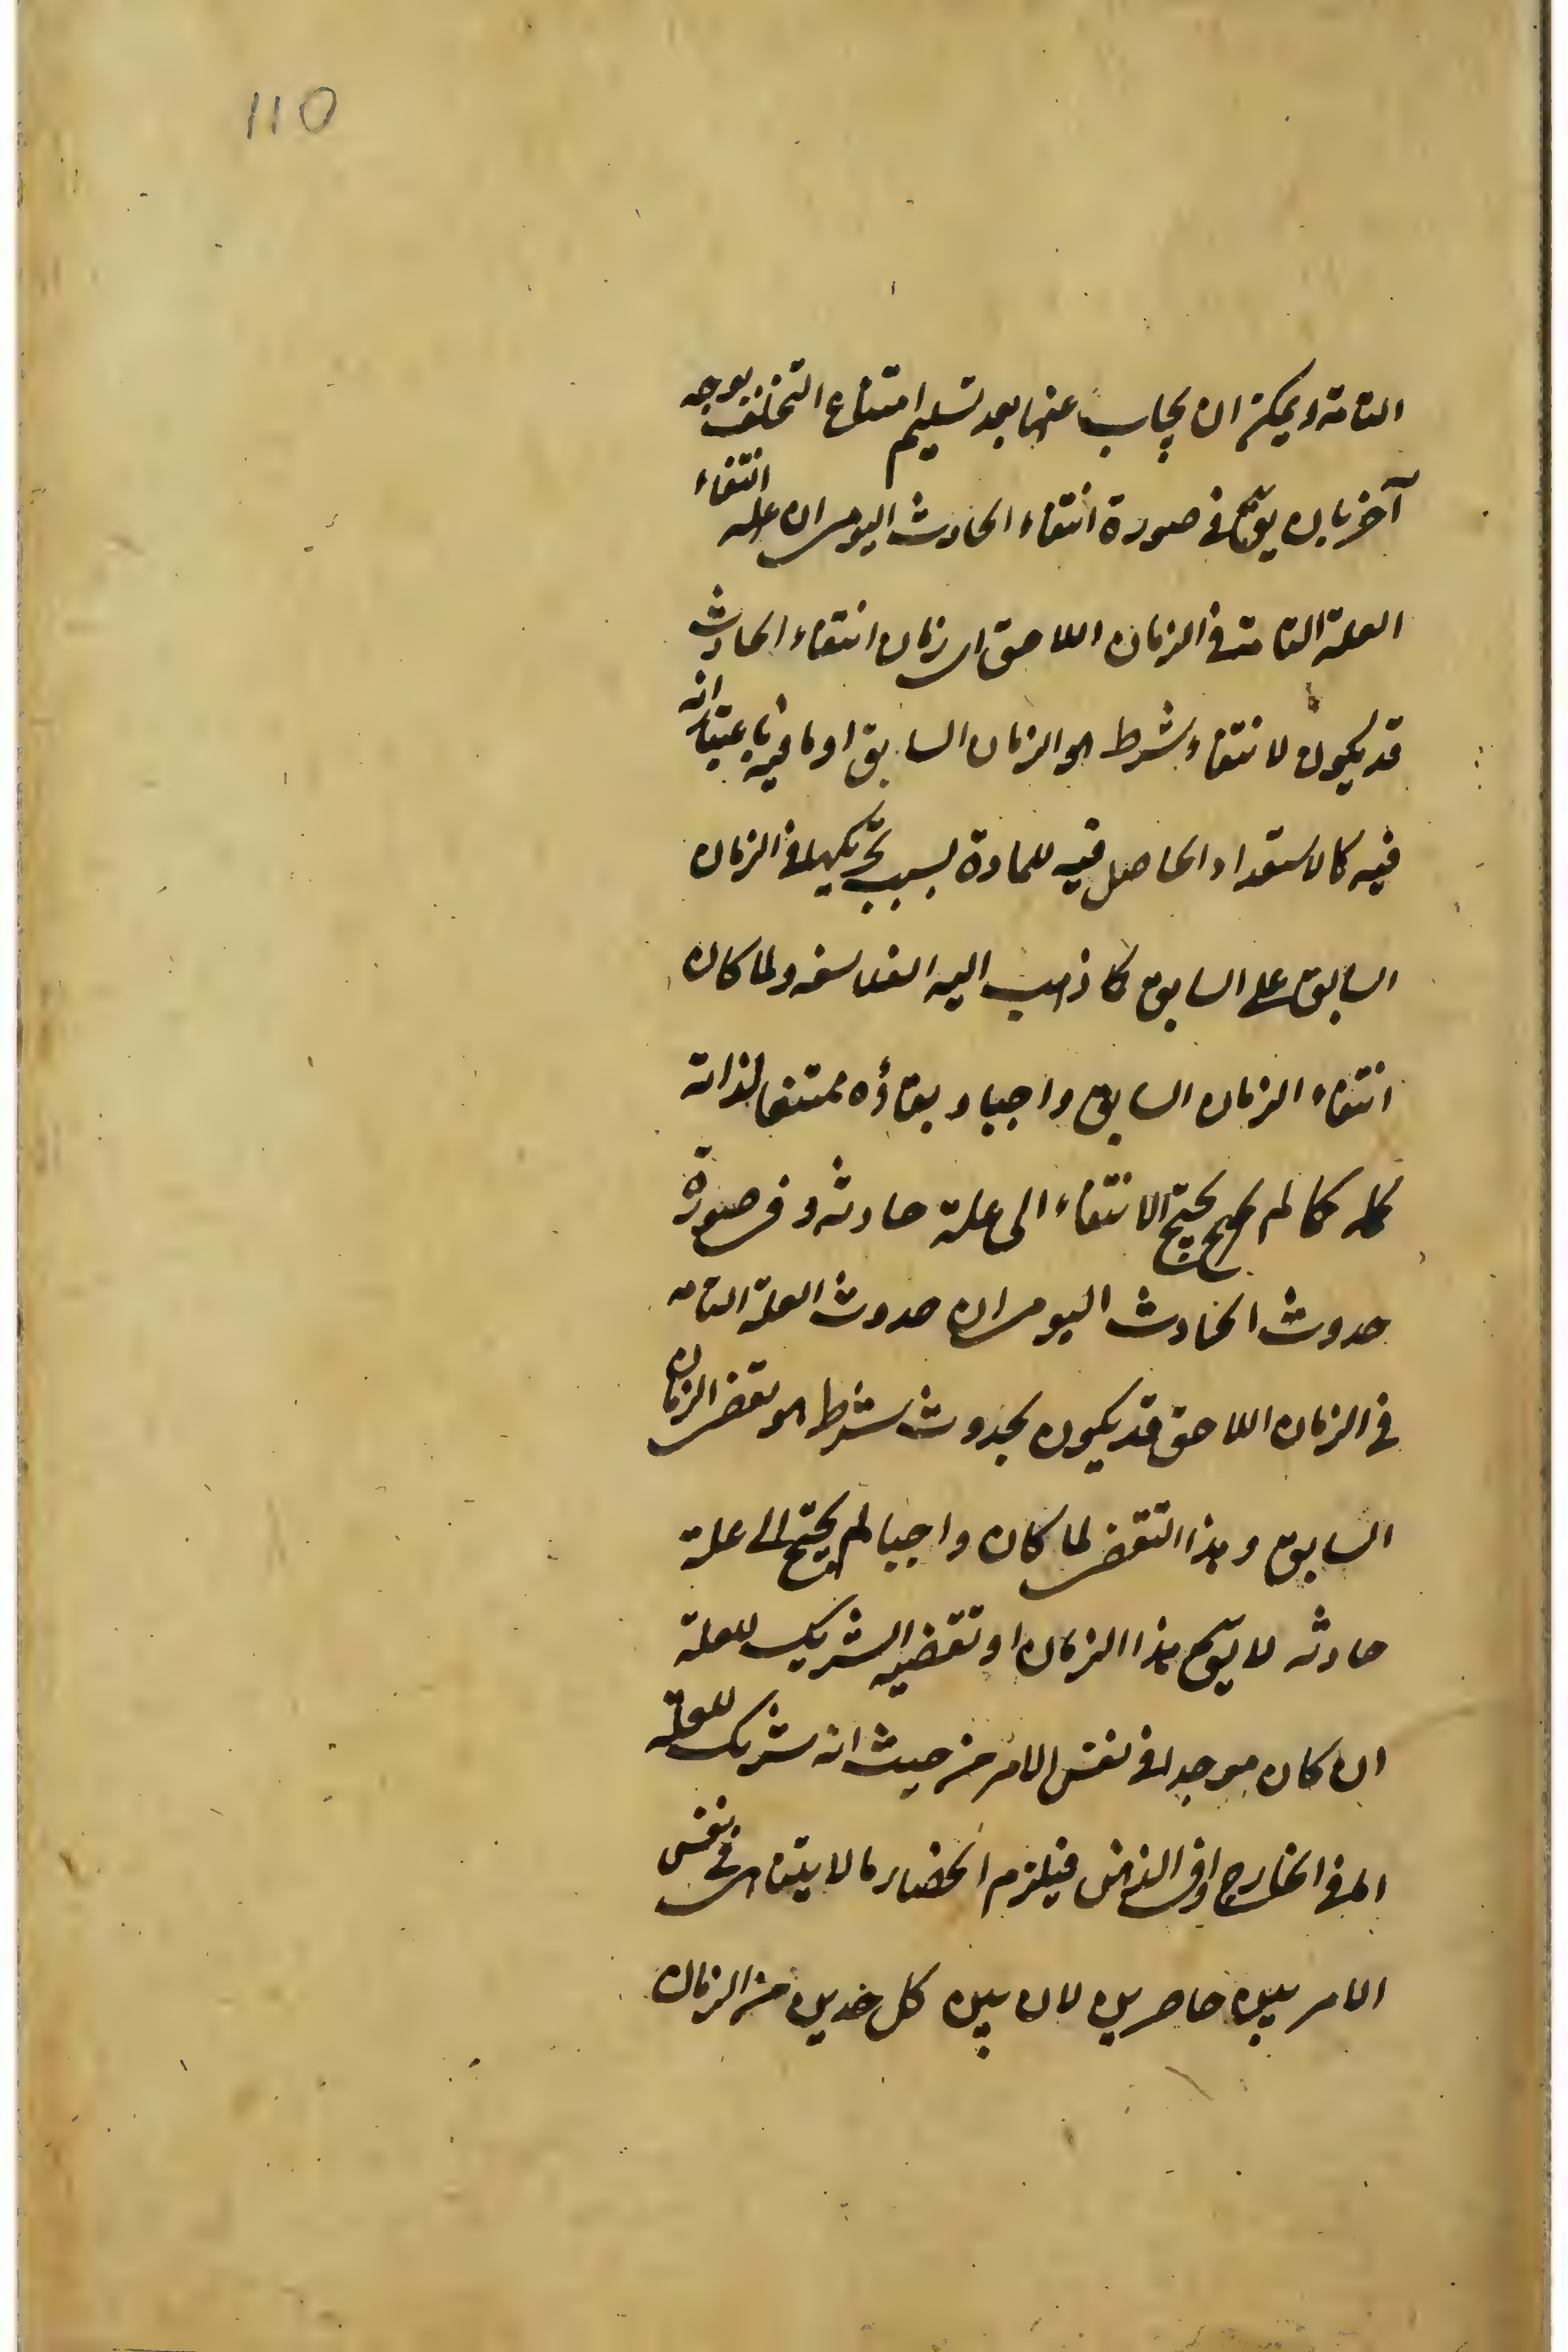 110
التامة ويمكن ان يجاب عنها بعد تسليم امتناع التخلف بوجه
آخر بان يقال في صورة انتفاء الحادث اليومى ان علة انتفاء
العلة التامة في الزمان اللاحق اى زمان انتفاء الحادث
قد يكون لانتفاء شرط هو الزمان السابق او ما فيه باعتبار انه
فيه كالاستعداد الحاصل فيه للمادة بسبب في الزمان
السابق على السابق كما ذهب اليه الفلاسفه ولما كان
انتفاء الزمان السابق واجبا و بقاؤه ممتنعا لذاته
لم يحتج الانتفاء الى علة حادثه و في صورة
حدوث الحادث اليومى ان حدوث العلة التامه
في الزمان اللاحق قد يكون بحدوث شرط هو تقضى الزمان
السابق و هذا التقضى لما كان واجبا لم يحتج الى علة
حادثه لا يقال هذا الزمان او تقضيه الشريك للعلة
ان كان موجدا في نفس الامر من حيث انه شريك للعلة
اما في الخارج او في الذهن فيلزم انحصار ما لا يتناهى في نفس
الامر بين حاصرين لان بين كل حدين من الزمان